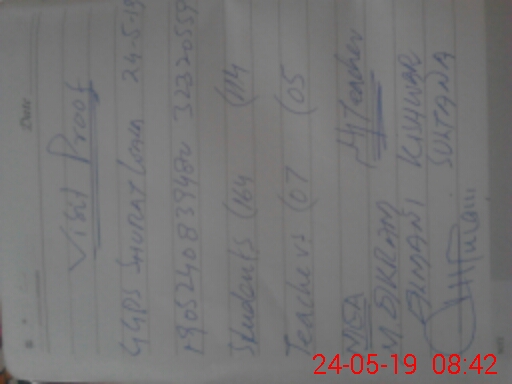 Date
Visit Proof
GGPS SHORAT Lona 24-5-19
19052408394802 32320559
Students (164 (114
Teachers (07 (05
MEA H/Teacher
M IKRAM KISHWAR
USMANI SULTANA
24-05-19 08:42